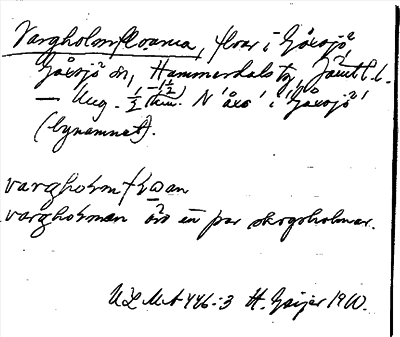 Vargholmfloarna, floar i Gåxsjö,
Gåxsjö sn, Hammerdals tg, Jämtl. l.
— Ung. ½ (–1½) km. N 'åxs' i 'Gåxsjö'
(bynamnet).
vargholm
vargholman är en par skogsholmar.
ULMA 446:3 H. Geijer 1910.